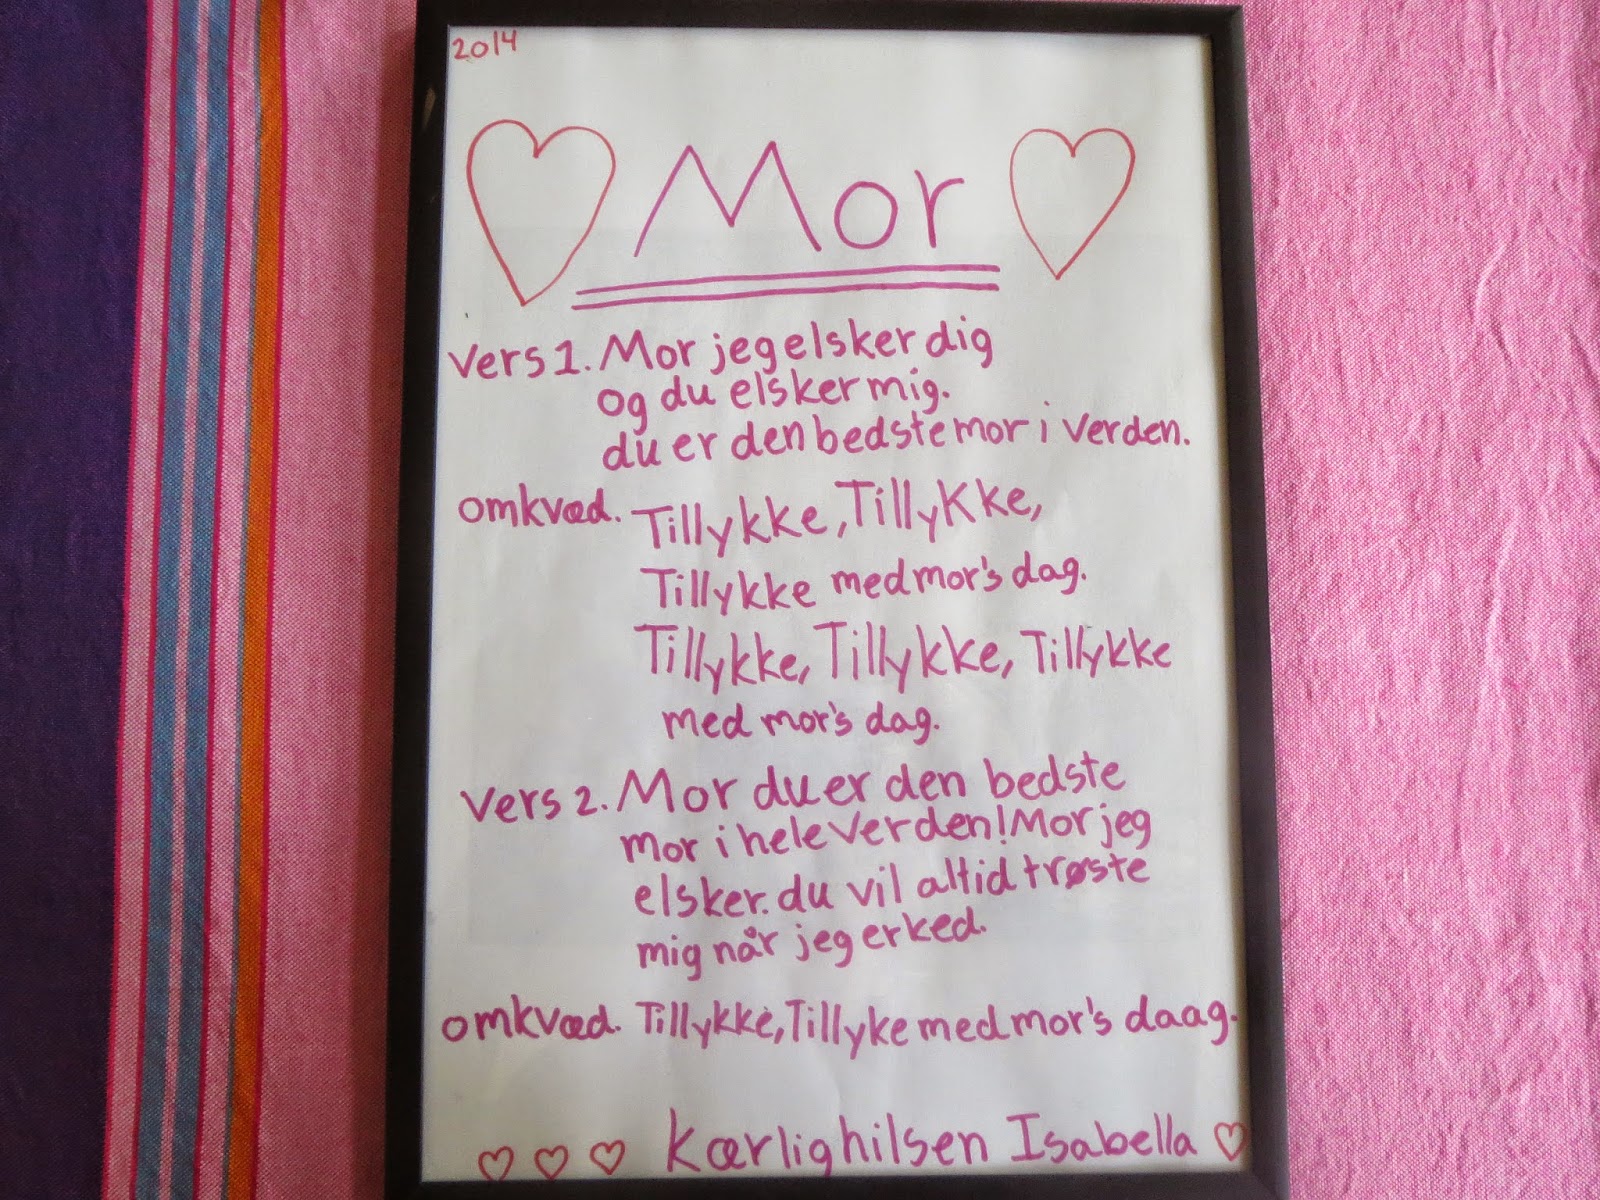 2014
Mor
Vers 1. Mor jeg elsker dig
og du elsker mig.
du er den bedste mor i verden.
omkvæd. Tillykke, Tillykke,
Tillykke med mor's dag.
Tillykke, Tillykke, Tillykke
med mor's dag.
Vers 2. Mor du er den bedste
mor i hele verden! Mor jeg
elsker. du vil altid trøste
mig når jeg er ked.
omkvæd. Tillykke, Tillyke med mor's daag.
Kærlighilsen Isabella